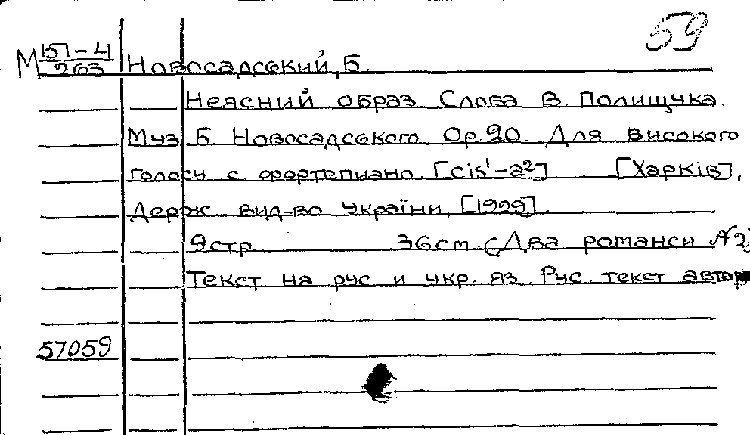 59
М 151-4/263 Новосадський, Б.
Неясний образ Слова В. Полищука.
Муз Б. Новосадського. Ор. 20. Для високого
голосу с фортепиано. [cis¹-a²] [Харків],
Держ вид-во України, [1929].
9 стр. 36 см. (Два романси №2)
Текст на рус и укр. яз. Рус. текст автора
57059